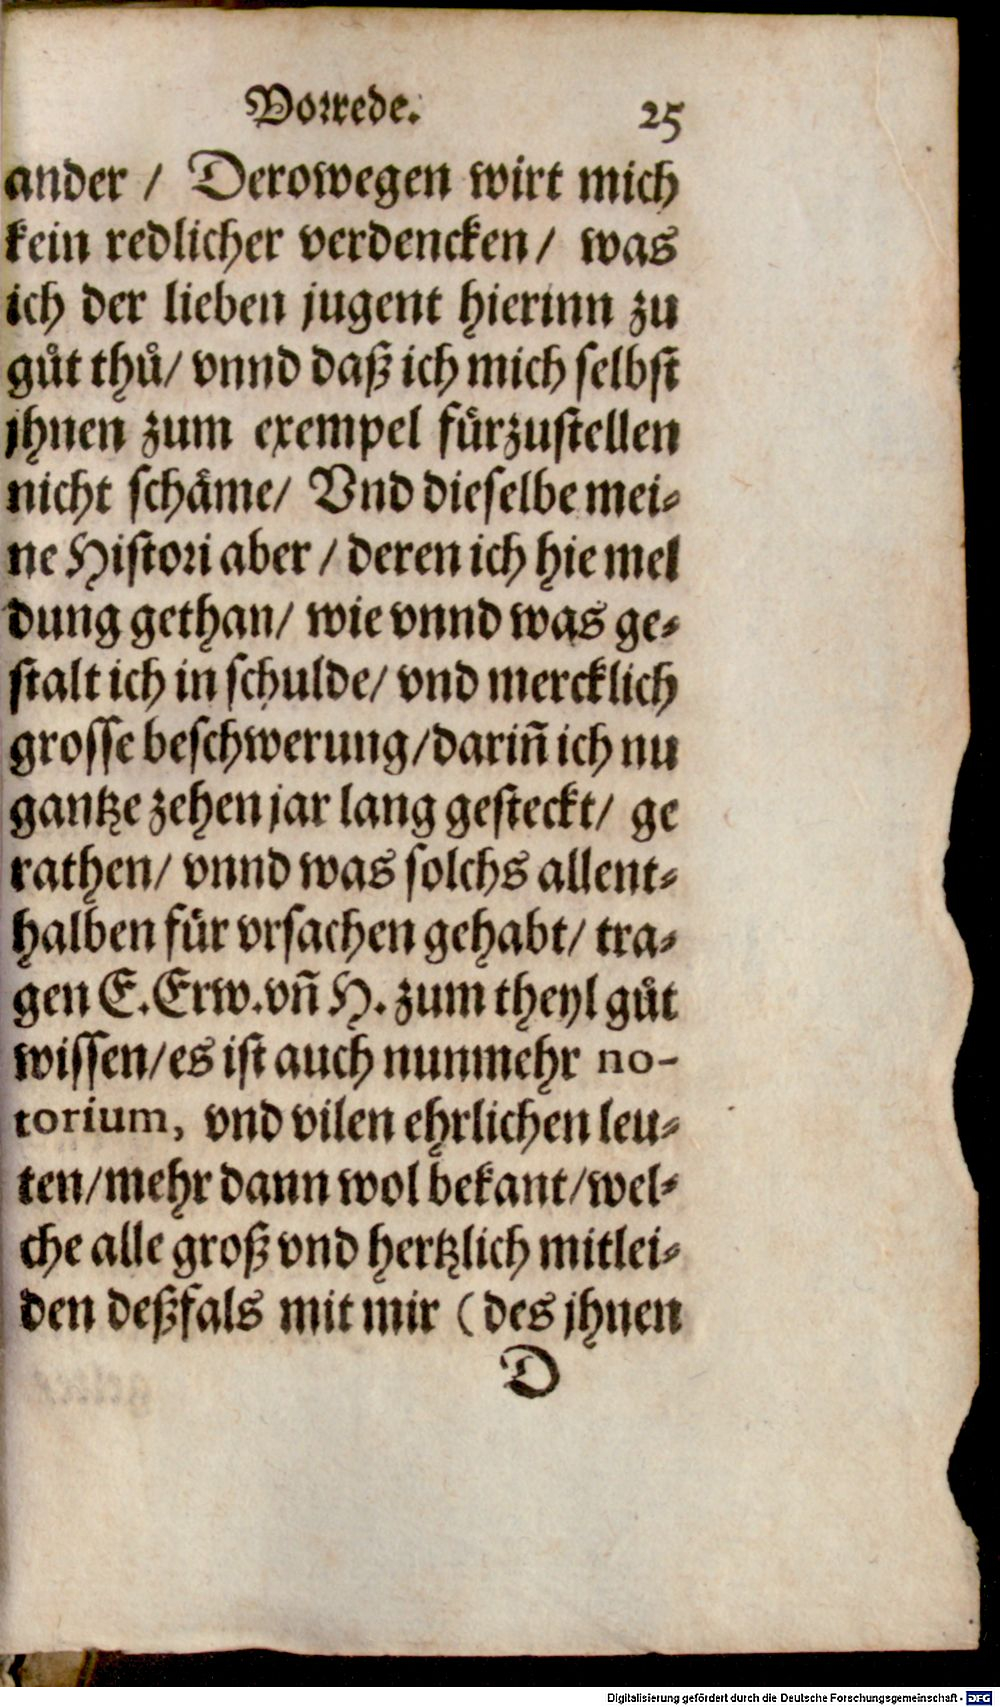 Vorrede. 25
ander / Derowegen wirt mich
kein redlicher verdencken / was
ich der lieben jugent hierinn zu
gůt thů / vnnd daß ich mich selbst
jhnen zum exempel fürzustellen
nicht schäme / Vnd dieselbe mei-
ne Histori aber / deren ich hie mel
dung gethan / wie vnnd was ge-
stalt ich in schulde / vnd mercklich
grosse beschwerung / dariñ ich nu
gantze zehen jar lang gesteckt / ge
rathen / vnnd was solchs allent-
halben für vrsachen gehabt / tra-
gen E. Erw. vñ H. zum theyl gůt
wissen / es ist auch nunmehr no-
torium, vnd vilen ehrlichen leu-
ten / mehr dann wol bekant / wel-
che alle groß vnd hertzlich mitlei-
den deßfals mit mir (des jhnen
D
Digitalisierung gefördert durch die Deutsche Forschungsgemeinschaft - DFG